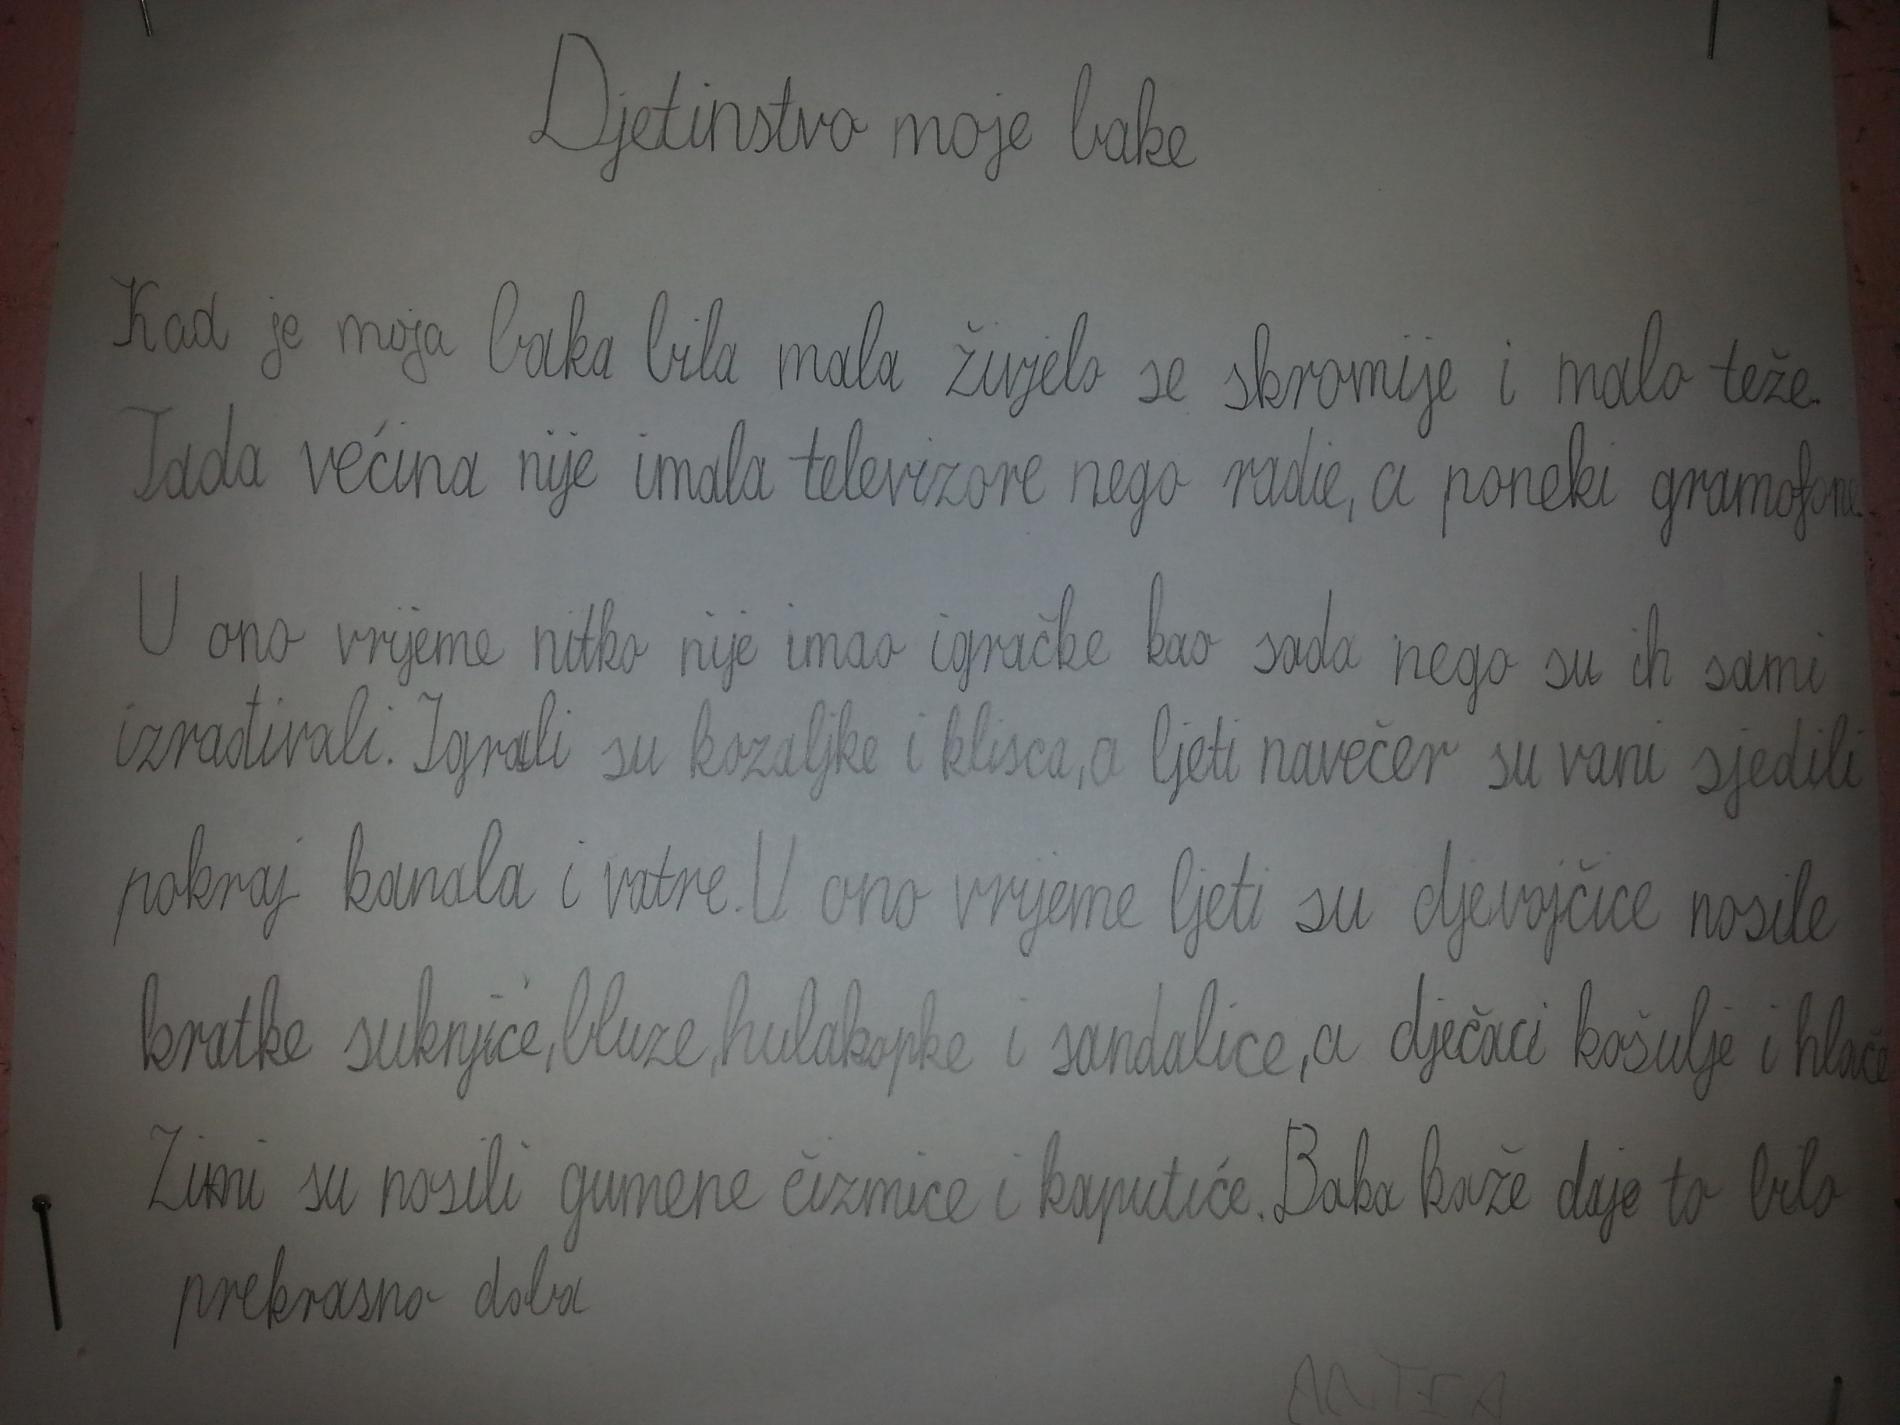 Djetinstvo moje bake
Kad je moja baka bila mala živjelo se skromije i malo teže.
Tada većina nije imala televizore nego radie, a poneki gramofone.
U ono vrijeme nitko nije imao igračke kao sada nego su ih sami
izrađivali. Igrali su kozaljke i klisca, a ljeti navečer su vani sjedili
pokraj kanala i vatre. U ono vrijeme ljeti su djevojčice nosile
kratke suknjiće, bluze, hulakopke i sandalice, a dječaci košulje i hlače
Zimi su nosili gumene čizmice i kaputiće. Baka kaže daje to bilo
prekrasno doba